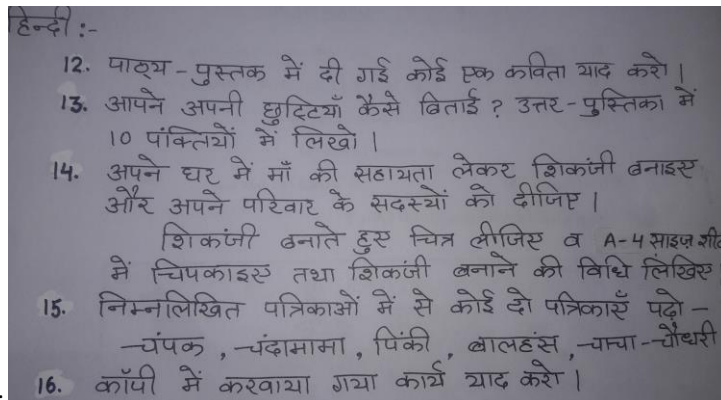 हिन्दी :-
12. पाठ्य - पुस्तक में दी गई कोई एक कविता याद करो |
13. आपने अपनी छुट्टियाँ कैसे बिताई ? उत्तर - पुस्तिका में
10 पंक्तियों में लिखो |
14. अपने घर में माँ की सहायता लेकर शिकंजी बनाइए
और अपने परिवार के सदस्यों को दीजिए |
शिकंजी बनाते हुए चित्र लीजिए व A-4 साइज़ शी
में चिपकाइए तथा शिकंजी बनाने की विधि लिखिए
15. निम्नलिखित पत्रिकाओं में से कोई दो पत्रिकाएँ पढ़ो -
चंपक , चंदामामा , पिंकी , बालहंस , चाचा - चौधरी
16. कॉपी में करवाया गया कार्य याद करो |